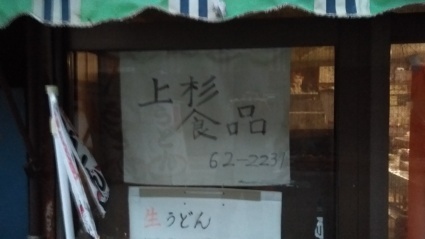 上杉食品
62-2231
生うどん